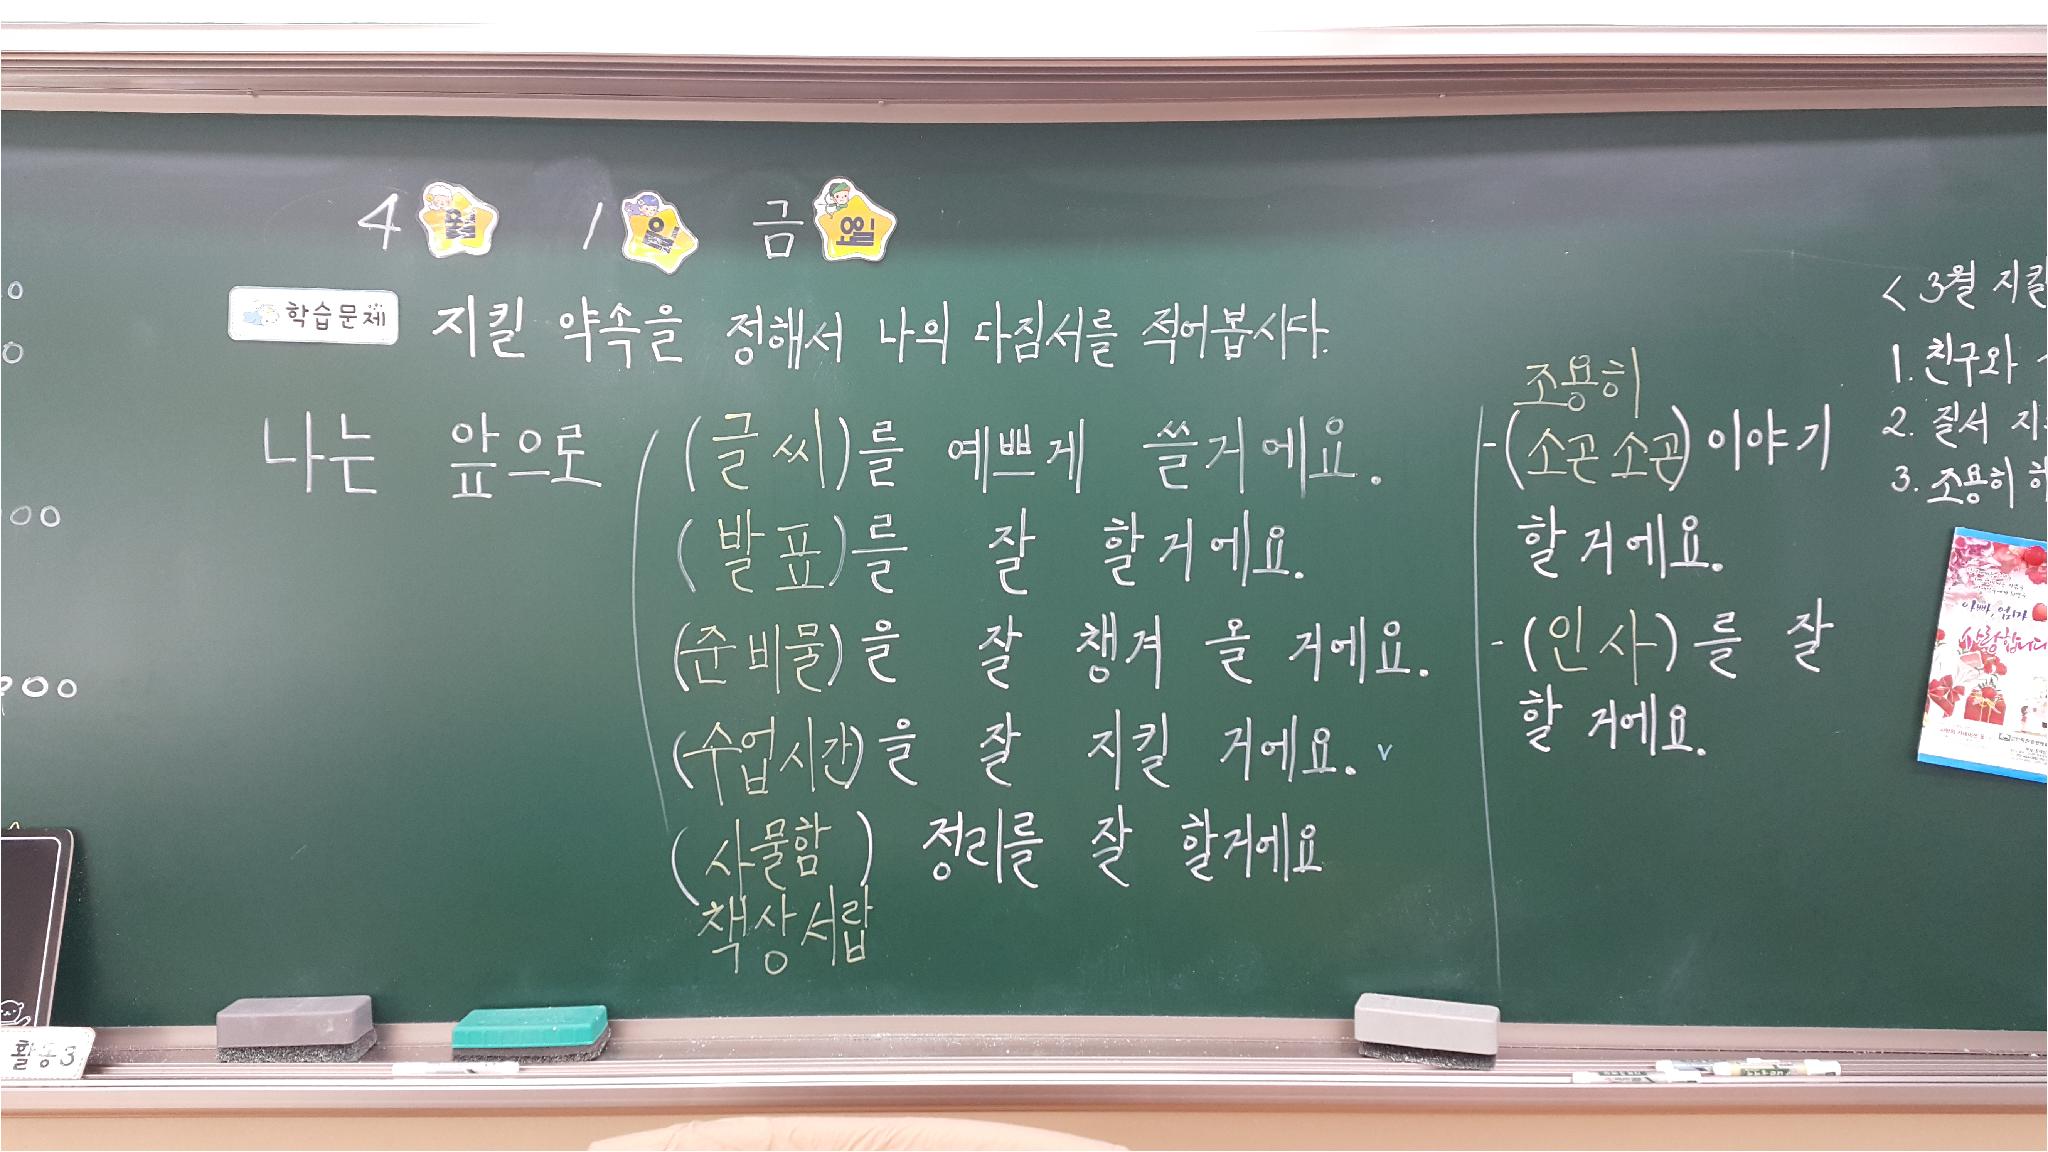 4월 1일 금요일
학습문제 지킬 약속을 정해서 나의 다짐서를 적어봅시다.
나는 앞으로 (글씨)를 예쁘게 쓸거에요.
(발표)를 잘 할거에요.
(준비물)을 잘 챙겨 올 거에요.
(수업시간)을 잘 지킬 거에요. v
(사물함) 정리를 잘 할거에요
책상서랍
조용히
-(소곤소곤) 이야기
할거에요.
-(인사)를 잘
할 거에요.
<3월 지킬
1. 친구와
2. 질서
3. 조용히
아빠, 엄마
사랑합니다
활동3